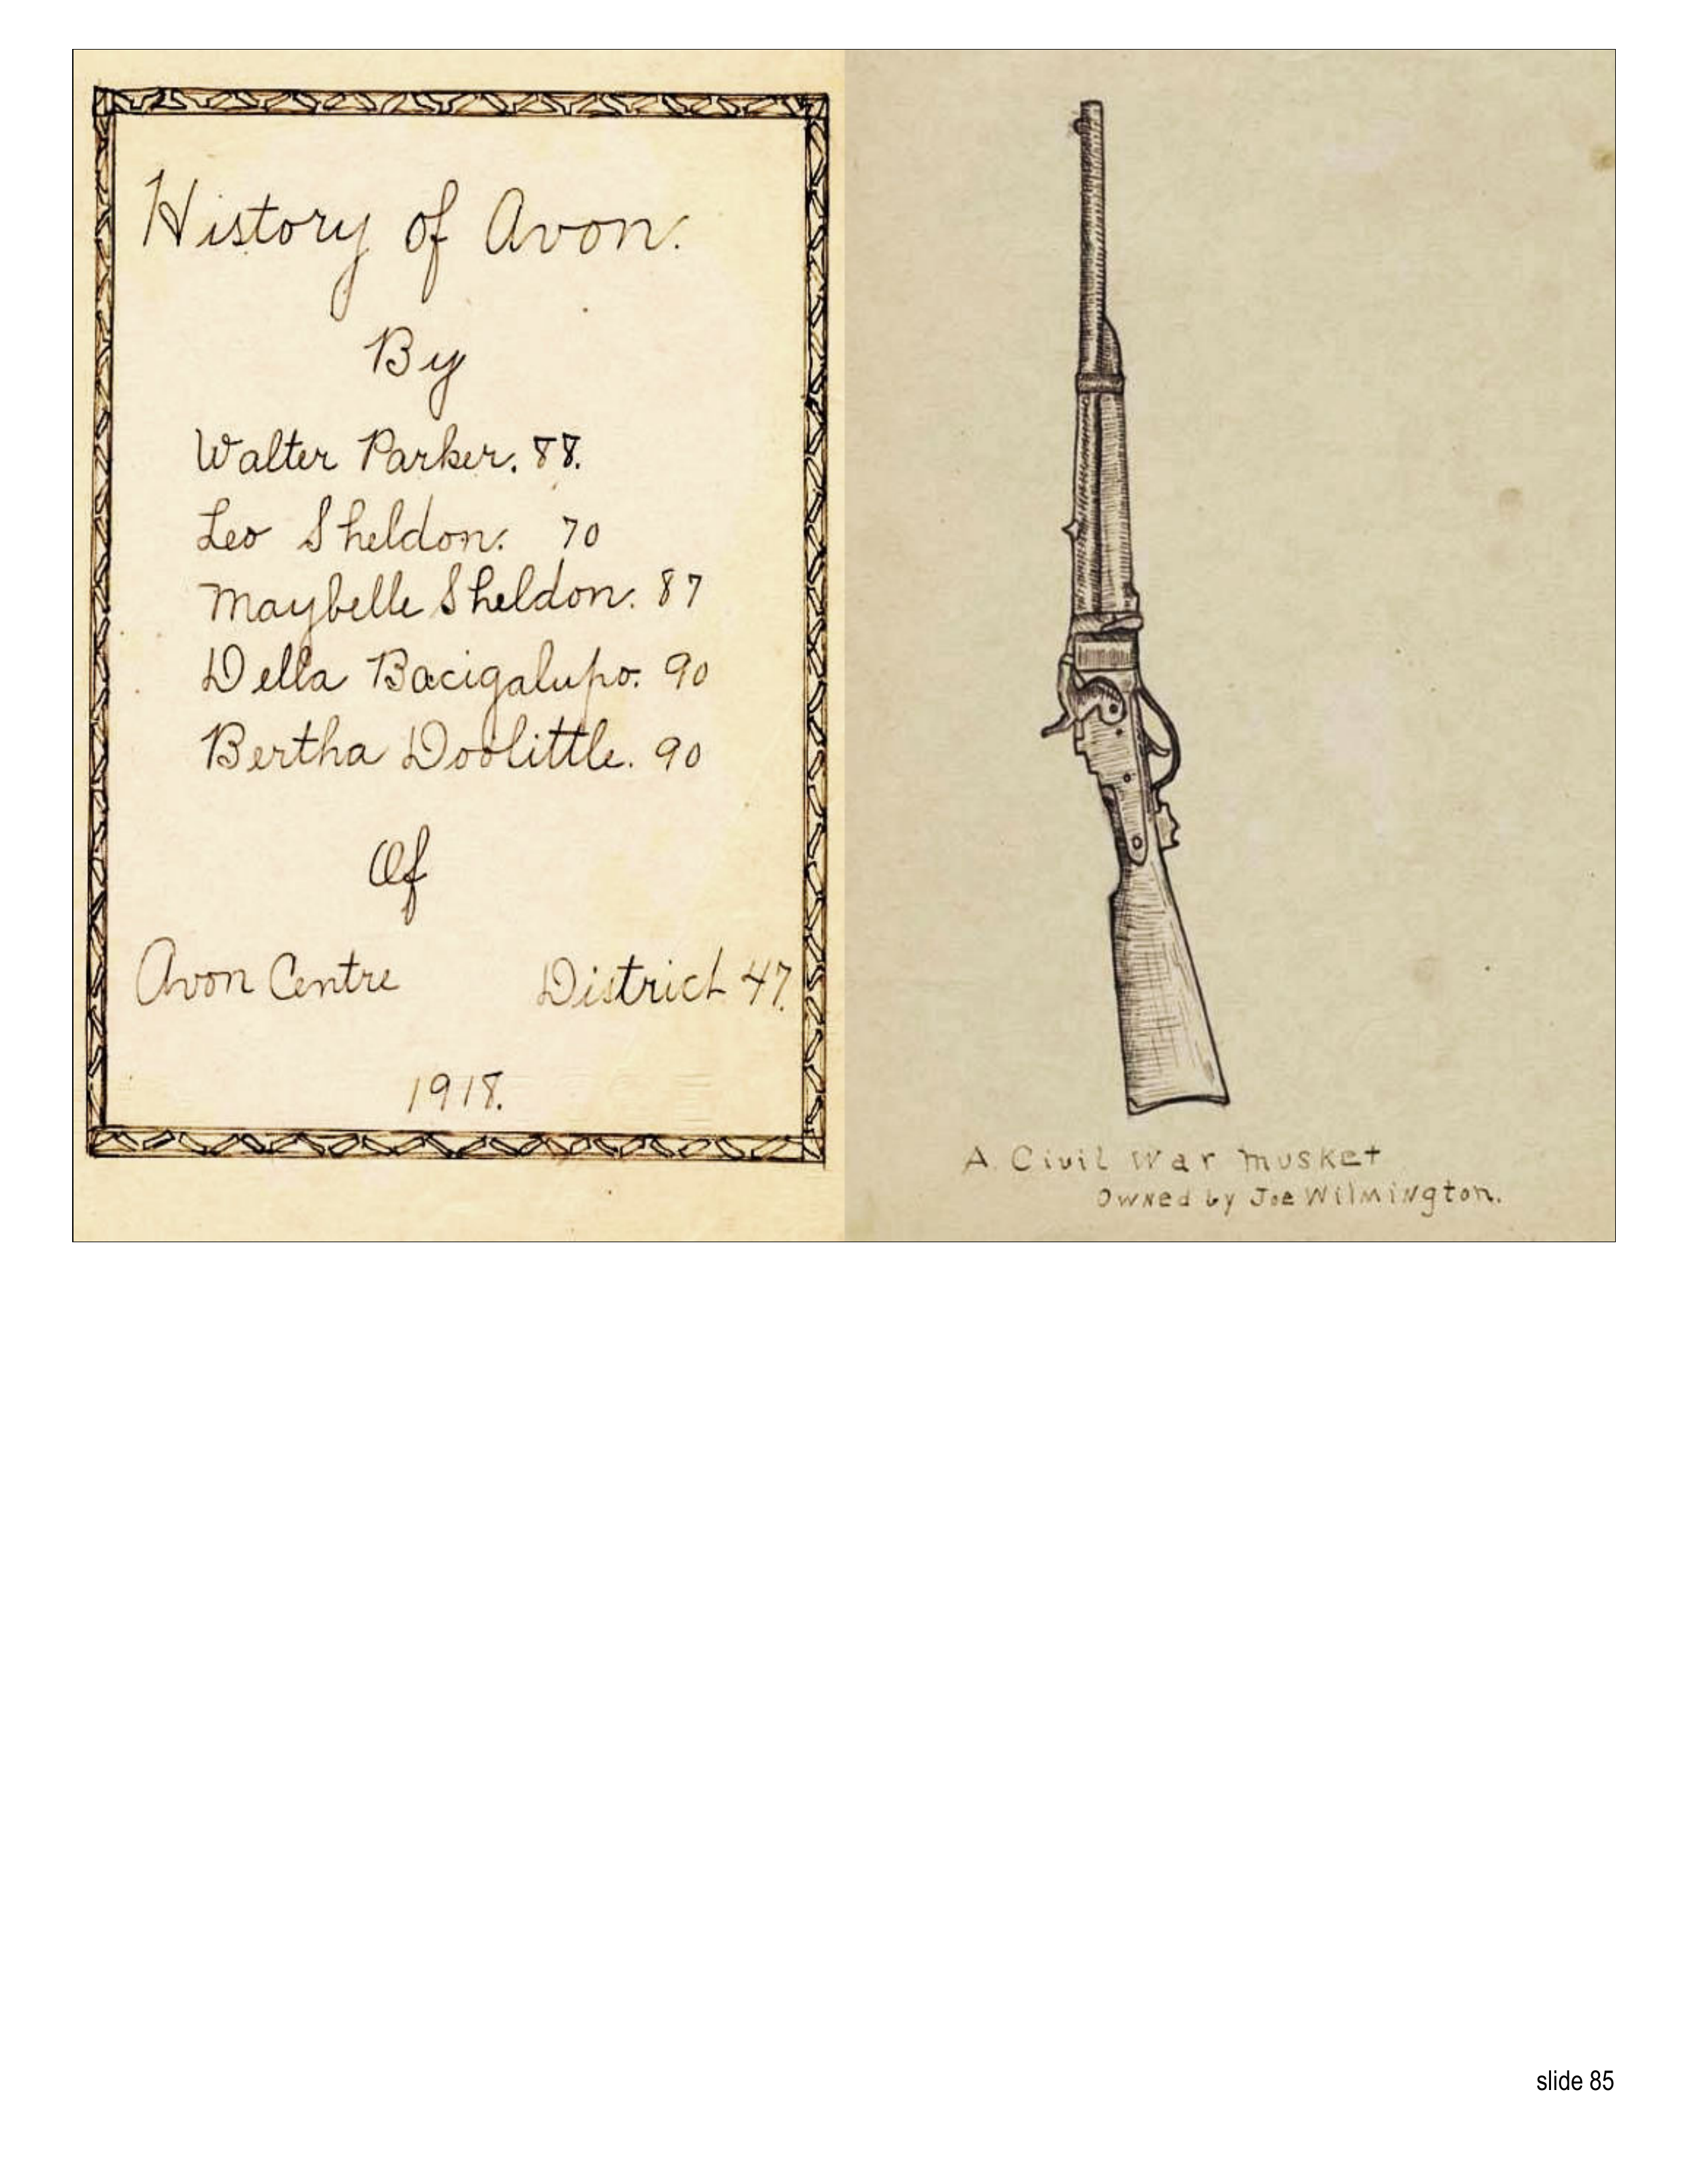 History of Avon.
By
Walter Parker. 88.
Leo Sheldon. 70
Maybelle Sheldon. 87
Della Bacigalupo. 90
Bertha Doolittle. 90
Of
Avon Centre District 47.
1918.
A Civil War Musket
Owned by Joe Wilmington.
slide 85